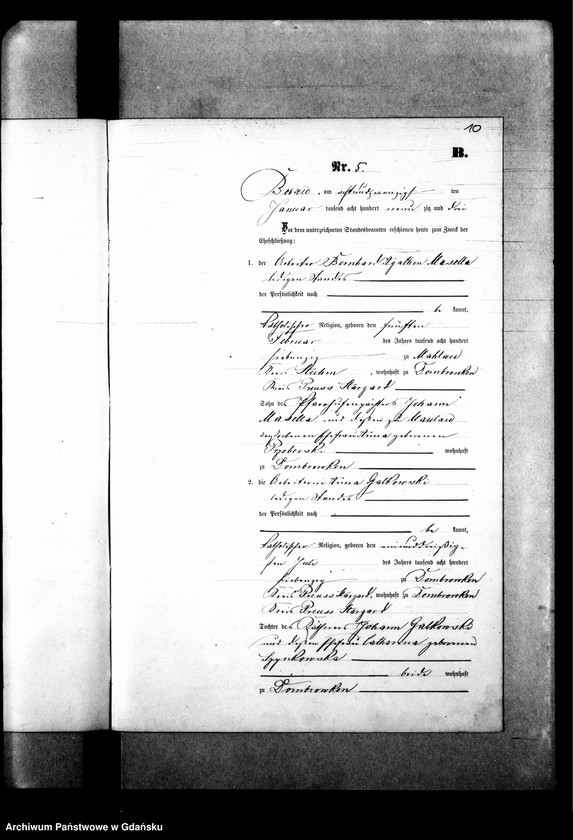 10
B.
Nr. 5.
am achtundzwanzigsten ten
Januar tausend acht hundert neun zig und drei
Vor dem unterzeichneten Standesbeamten erschienen heute zum Zweck der
Eheschließung:
1. der Arbeiter Bernhard Masella
ledigen Standes
der Persönlichkeit nach
be kannt,
katholischer Religion, geboren den fünften
Februar des Jahres tausend acht hundert
siebenzig zu Mahlau
Kreis Stuhm, wohnhaft zu Dombrowken
Kreis Preuss Stargard
Sohn des Johann
Masella und dessen zu
verstorbenen Ehefrau Anna geborenen
wohnhaft
zu Dombrowken
2. die Arbeiterin Anna Galkowski
ledigen Standes
der Persönlichkeit nach
be kannt,
katholischer Religion, geboren den einunddreißig-
sten Juli des Jahres tausend acht hundert
siebenzig zu Dombrowken
Kreis Preuss Stargard, wohnhaft zu Dombrowken
Kreis Preuss Stargard
Tochter des Käthners Johann Galkowski
und dessen Ehefrau Catharina geborenen
beide wohnhaft
zu Dombrowken
Archiwum Państwowe w Gdańsku